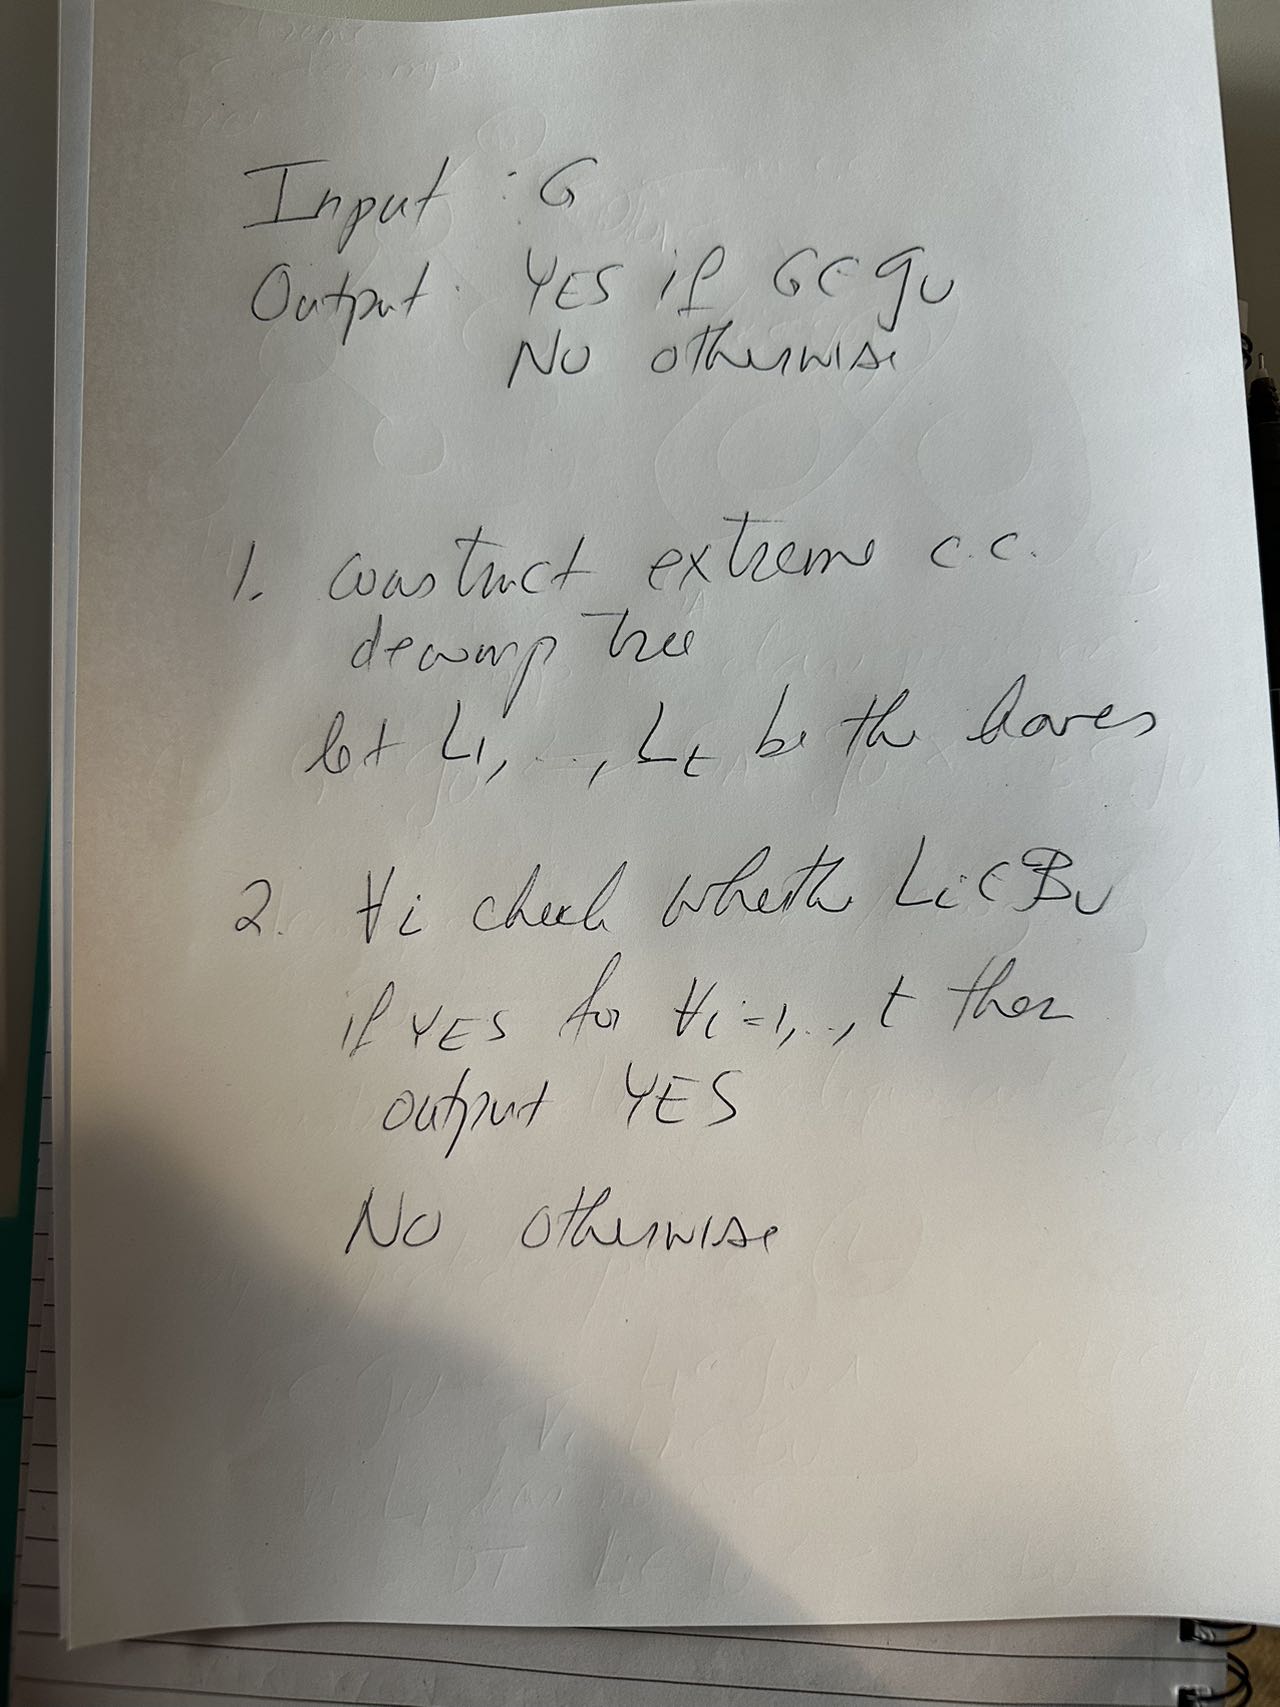 Input : G
Output: YES if G ∈ 𝒢U
NO otherwise
1. construct extreme c.c.
decomp tree
let L1, ..., Lt be the leaves
2. ∀i check whether Li ∈ BU
if YES for ∀i=1,..., t then
output YES
NO otherwise